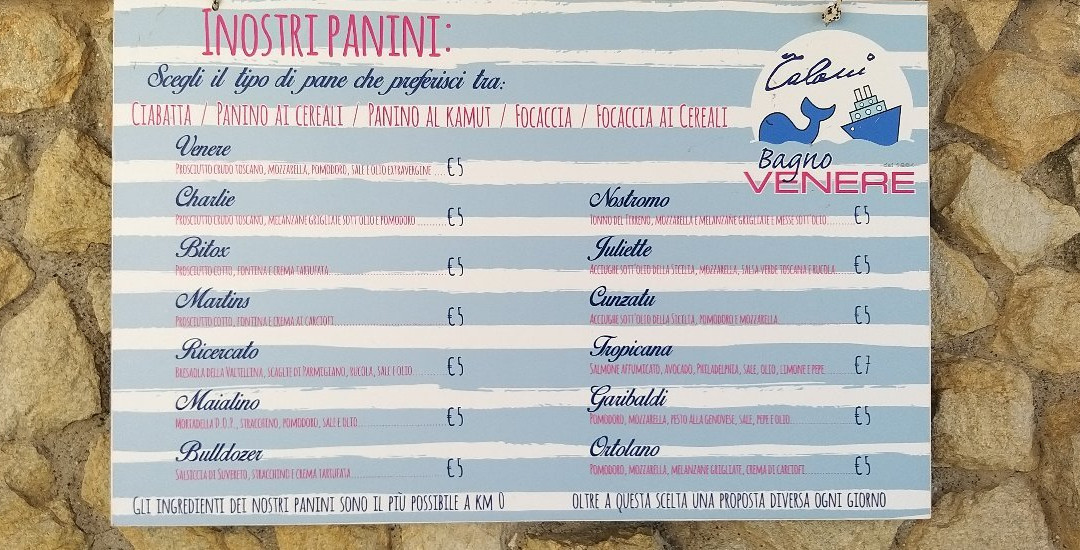 I NOSTRI PANINI:
Scegli il tipo di pane che preferisci tra:
CIABATTA / PANINO AI CEREALI / PANINO AL KAMUT / FOCACCIA / FOCACCIA AI CEREALI
Bagno
VENERE
Venere
PROSCIUTTO CRUDO TOSCANO, MOZZARELLA, POMODORO, SALE E OLIO EXTRAVERGINE .... €5
Charlie
PROSCIUTTO CRUDO TOSCANO, MELANZANE GRIGLIATE SOTT'OLIO E POMODORO .......... €5
Bitox
PROSCIUTTO COTTO, FONTINA E CREMA TARTUFATA .......... €5
Martins
PROSCIUTTO COTTO, FONTINA E CREMA AI CARCIOFI .......... €5
Ricercato
BRESAOLA DELLA VALTELLINA, SCAGLIE DI PARMIGIANO, RUCOLA, SALE E OLIO .......... €5
Maialino
MORTADELLA D.O.P., STRACCHINO, POMODORO, SALE E OLIO .......... €5
Bulldozer
SALSICCIA DI SUVERETO, STRACCHINO E CREMA TARTUFATA .......... €5
Nostromo
TONNO DEL TIRRENO, MOZZARELLA E MELANZANE GRIGLIATE E MESSE SOTT'OLIO .......... €5
Juliette
ACCIUGHE SOTT'OLIO DELLA SICILIA, MOZZARELLA, SALSA VERDE TOSCANA E RUCOLA .... €5
Cunzatu
ACCIUGHE SOTT'OLIO DELLA SICILIA, POMODORO E MOZZARELLA .......... €5
Tropicana
SALMONE AFFUMICATO, AVOCADO, PHILADELPHIA, SALE, OLIO, LIMONE E PEPE .......... €7
Garibaldi
POMODORO, MOZZARELLA, PESTO ALLA GENOVESE, SALE, PEPE E OLIO .......... €5
Ortolano
POMODORO, MOZZARELLA, MELANZANE GRIGLIATE, CREMA DI CARCIOFI .......... €5
GLI INGREDIENTI DEI NOSTRI PANINI SONO IL PIÙ POSSIBILE A KM 0
OLTRE A QUESTA SCELTA UNA PROPOSTA DIVERSA OGNI GIORNO